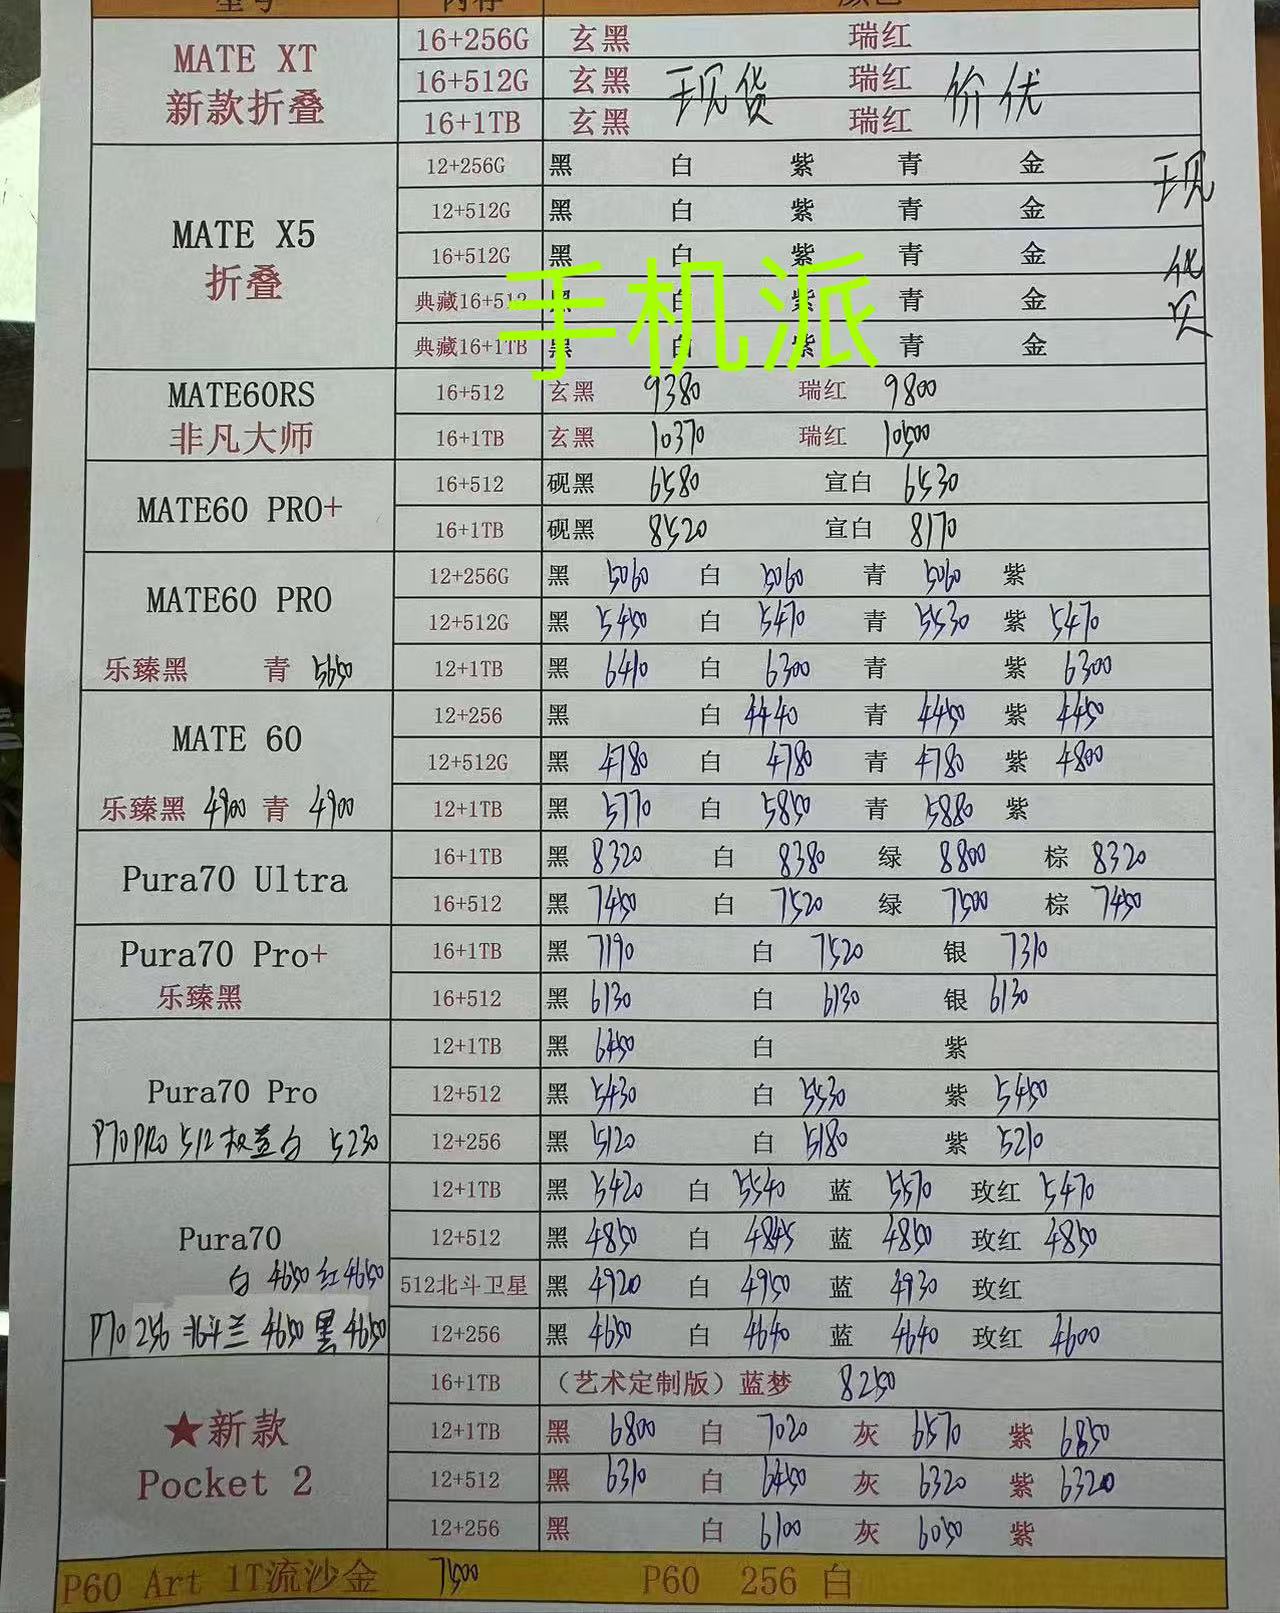 型号 内存 颜色
MATE XT 新款折叠
16+256G 玄黑 瑞红
16+512G 玄黑 现货 瑞红 价优
16+1TB 玄黑 瑞红
MATE X5 折叠
12+256G 黑 白 紫 青 金 现
12+512G 黑 白 紫 青 金
16+512G 黑 白 紫 青 金 优
典藏16+512 黑 白 紫 青 金
典藏16+1TB 黑 白 紫 青 金
手机派
MATE60RS 非凡大师
16+512 玄黑 9380 瑞红 9800
16+1TB 玄黑 10370 瑞红 10500
MATE60 PRO+
16+512 砚黑 6580 宣白 6530
16+1TB 砚黑 8520 宣白 8170
MATE60 PRO
乐臻黑 青 5650
12+256G 黑 5060 白 5060 青 5060 紫
12+512G 黑 5450 白 5470 青 5530 紫 5470
12+1TB 黑 6410 白 6300 青 紫 6300
MATE 60
乐臻黑 4900 青 4900
12+256 黑 白 4440 青 4450 紫 4450
12+512G 黑 4780 白 4780 青 4780 紫 4800
12+1TB 黑 5770 白 5850 青 5880 紫
Pura70 Ultra
16+1TB 黑 8320 白 8380 绿 8800 棕 8320
16+512 黑 7450 白 7520 绿 7500 棕 7450
Pura70 Pro+
乐臻黑
16+1TB 黑 7190 白 7520 银 7310
16+512 黑 6130 白 6130 银 6130
Pura70 Pro
P70PRO 512 白 5230
12+1TB 黑 6450 白 紫
12+512 黑 5430 白 5530 紫 5450
12+256 黑 5120 白 5180 紫 5210
Pura70
白 4650 红 4650
P70 256 北斗兰 4650 黑 4650
12+1TB 黑 5420 白 5540 蓝 5570 玫红 5470
12+512 黑 4850 白 4845 蓝 4850 玫红 4850
512北斗卫星 黑 4920 白 4950 蓝 4930 玫红
12+256 黑 4650 白 4640 蓝 4640 玫红 4600
★新款
Pocket 2
16+1TB （艺术定制版）蓝梦 8250
12+1TB 黑 6800 白 7020 灰 6570 紫 6850
12+512 黑 6310 白 6450 灰 6320 紫 6320
12+256 黑 白 6100 灰 6050 紫
P60 Art 1T流沙金 7500 P60 256 白